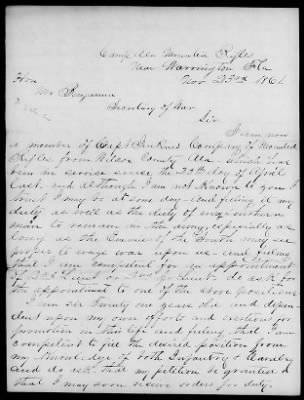 Camp Mounted Rifles
Near Warrington Fla
Nov 23rd 1861
Hon
Mr Benjamin
Secretary of War
Sir
I am now
a member of Capt Company of Mounted
Rifles from County Ala. which has
been in service since the 20th day of April
last. and although I am not Known to you I
trust I may be at some day and feeling it my
duty as well as the duty of every southern
man to remain in the army, especially as
long as the Enemy of the South may see
proper to wage war upon us and feeling
that I am competent for an appointment
of Lieut or do ask for
the appointment to one of the above positions
I am Twenty one years old and depen-
dent upon my own efforts and exertions for
promotion in this life and feeling that I am
competent to fill the desired position from
my Knowledge of both Infantry & Cavalry
and do ask that my petition be granted &
that I may soon receive orders for duty.